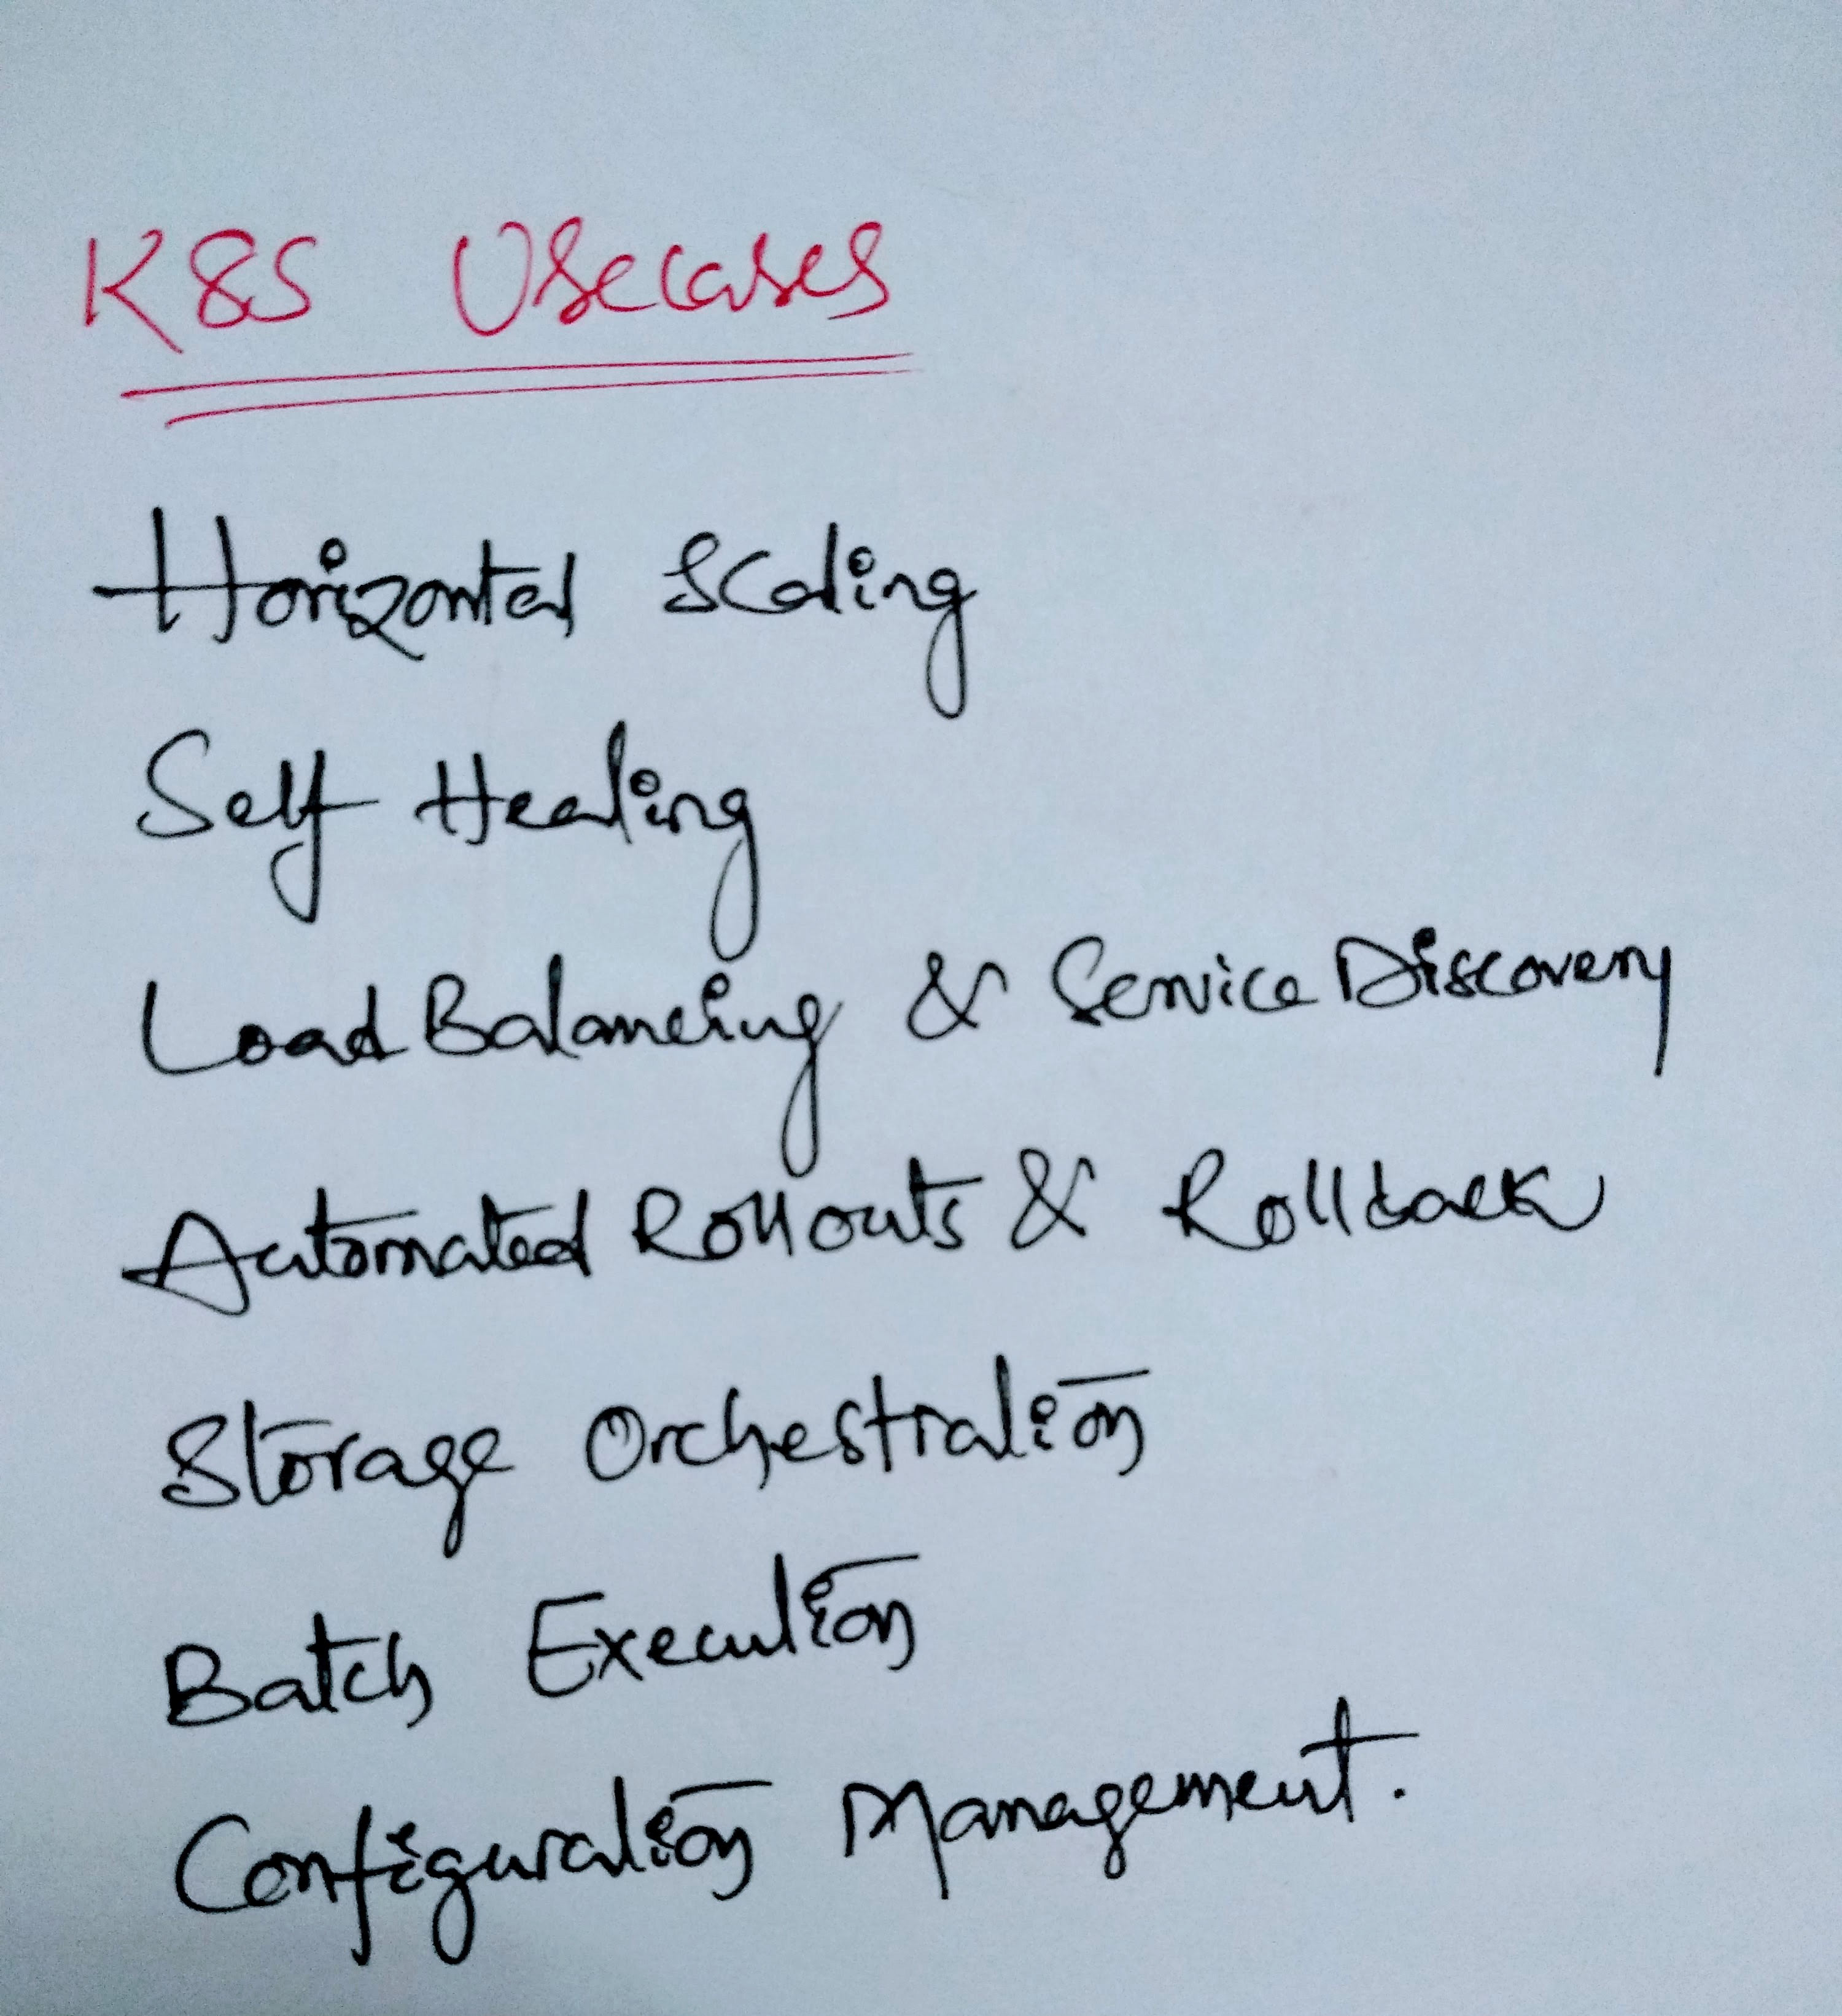 K8S Usecases
Horizontal Scaling
Self Healing
Load Balancing & Service Discovery
Automated Rollouts & Rollback
Storage Orchestration
Batch Execution
Configuration Management.